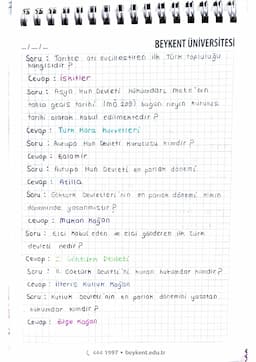 BEYKENT ÜNİVERSİTESİ
_/_/_
Soru : Tarihte atı evcilleştiren ilk Türk topluluğu
hangisidir ?
Cevap : İskitler
Soru : Asya Hun Devleti hükümdarı mete'nin
tahta geçiş tarihi (MÖ 209) bugün neyin kuruluş
tarihi olarak kabul edilmektedir ?
Cevap : Türk Kara Kuvvetleri
Soru : Avrupa Hun Devleti kurucusu kimdir ?
Cevap : Balamir
Soru : Avrupa Hun Devleti en parlak dönemi
Cevap : Atilla
Soru : Göktürk Devletleri'nin en parlak dönemi kimin
döneminde yaşanmıştır ?
Cevap : Mukan Kağan
Soru : Elçi kabul eden ve elçi gönderen ilk türk
devleti nedir ?
Cevap : I. Göktürk Devleti
Soru : II. Göktürk Devleti'ni kuran hükümdar kimdir ?
Cevap : İlteriş Kutluk Kağan
Soru : Kutluk Devleti'nin en parlak dönemini yaşatan
hükümdar kimdir ?
Cevap : Bilge Kağan
444 1997 • beykent.edu.tr